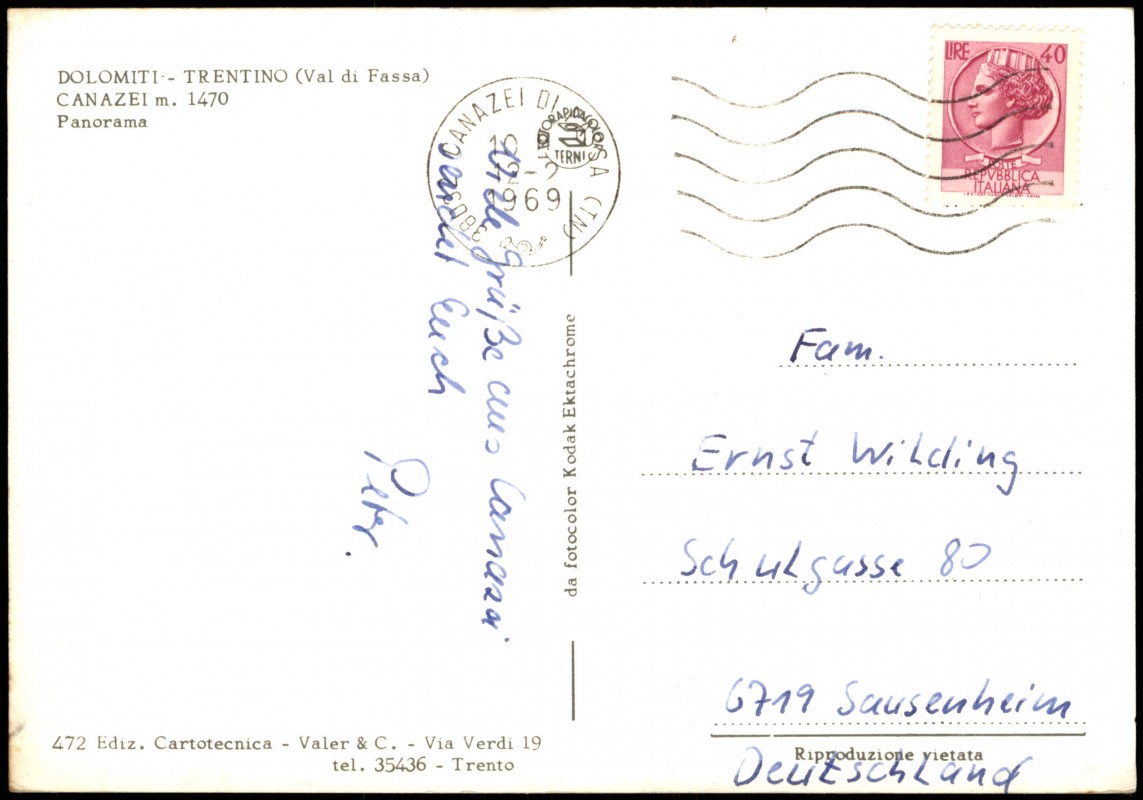 DOLOMITI - TRENTINO (Val di Fassa)
CANAZEI m. 1470
Panorama
38032 CANAZEI DI FASSA (TN)
12-2
1969
FOTORAPIDACOLOR
TERNI
LIRE 40
POSTE
REPVBBLICA
ITALIANA
Viele Grüße aus Canazei
sendet Euch
Peter.
da fotocolor Kodak Ektachrome
Fam.
Ernst Wilding
Schulgasse 80
6719 Sausenheim
Deutschland
Riproduzione vietata
472 Ediz. Cartotecnica - Valer & C. - Via Verdi 19
tel. 35436 - Trento